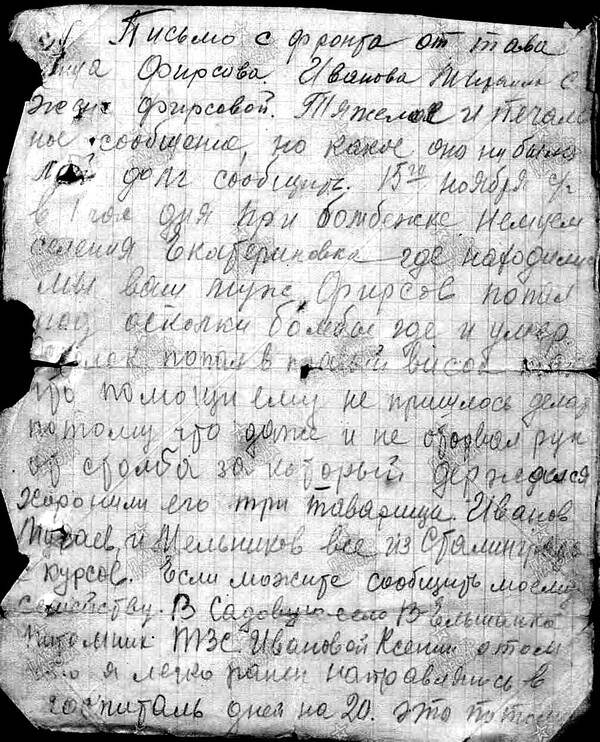 Письмо с фронта от тава
Фирсова. Иванова
жене Фирсовой. Тяжелое и печаль
ное сообщение, но какое оно ни было
мой долг сообщить. 15го ноября с/г
в 1 час дня при бомбежке немцем
селения Екатериновка где находились
мы ваш муж Фирсов попал
под осколки бомбы где и умер.
Осколок попал в правый висок
что помощи ему не пришлось делат
потому что даже и не оторвал рук
от столба за который держался
Хоронили его три таварища. Иванов
и Мельников все из Сталинграда
с курсов. Если можите сообщить моему
семейству. В Садовую село В Ельшанка
питомник ТЗС Ивановой Ксении о том
что я легко ранен направляюсь в
госпиталь дней на 20. это